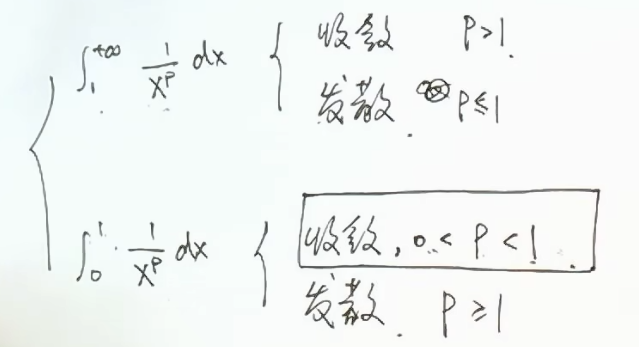 ∫₁^{+∞} 1/x^p dx { 收敛 P>1.
发散. P≤1
∫₀^1 1/x^p dx { 收敛, 0<P<1
发散. P≥1